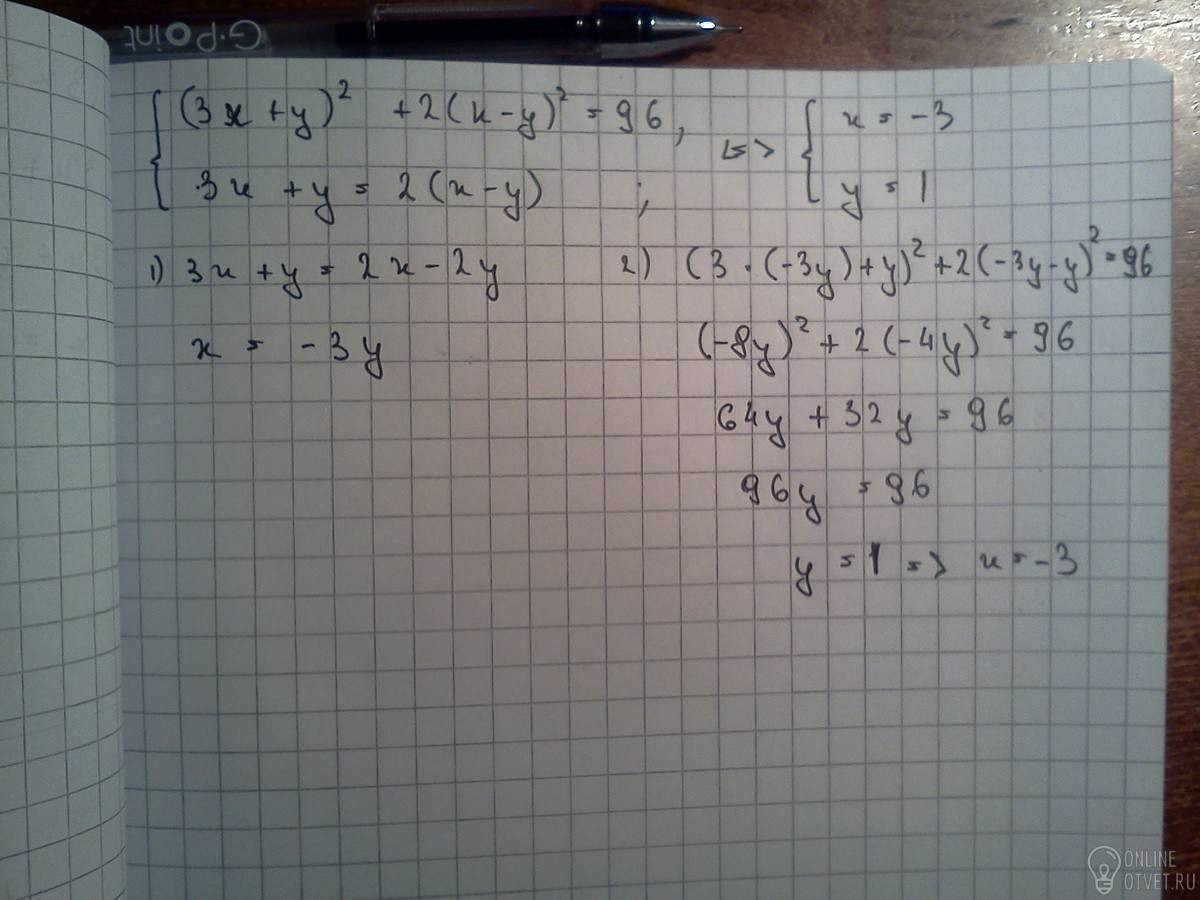 G-Point
(3x + y)² + 2(x - y)² = 96, <=> x = -3
3x + y = 2(x - y) ; y = 1
1) 3x + y = 2x - 2y
x = -3y
2) (3 · (-3y) + y)² + 2(-3y - y)² = 96
(-8y)² + 2(-4y)² = 96
64y + 32y = 96
96y = 96
y = 1 => x = -3
ONLINE
OTVET.RU